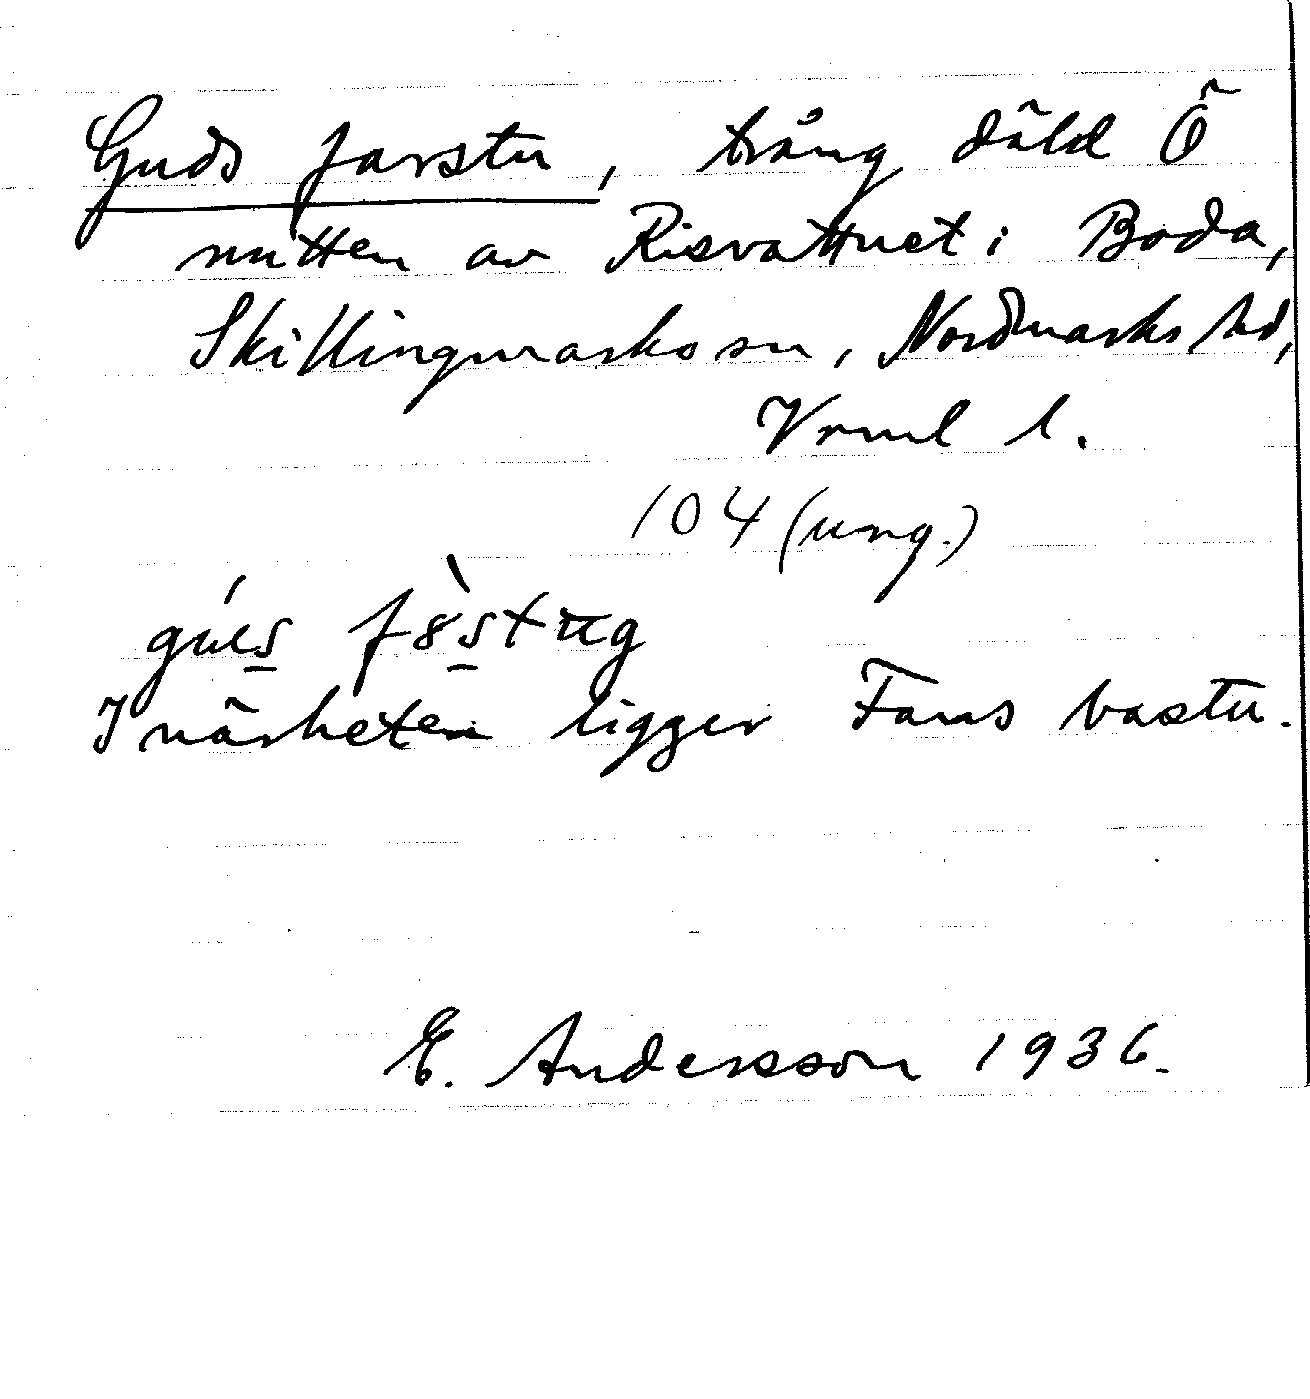 Guds farstu, trång däld Ö
mitten av Risvattnet i Boda,
Skillingmarks sn, Nordmarks hd,
Vrml l.
104 (ung.)
I närheten ligger Fans bastu.
E. Andersson 1936.